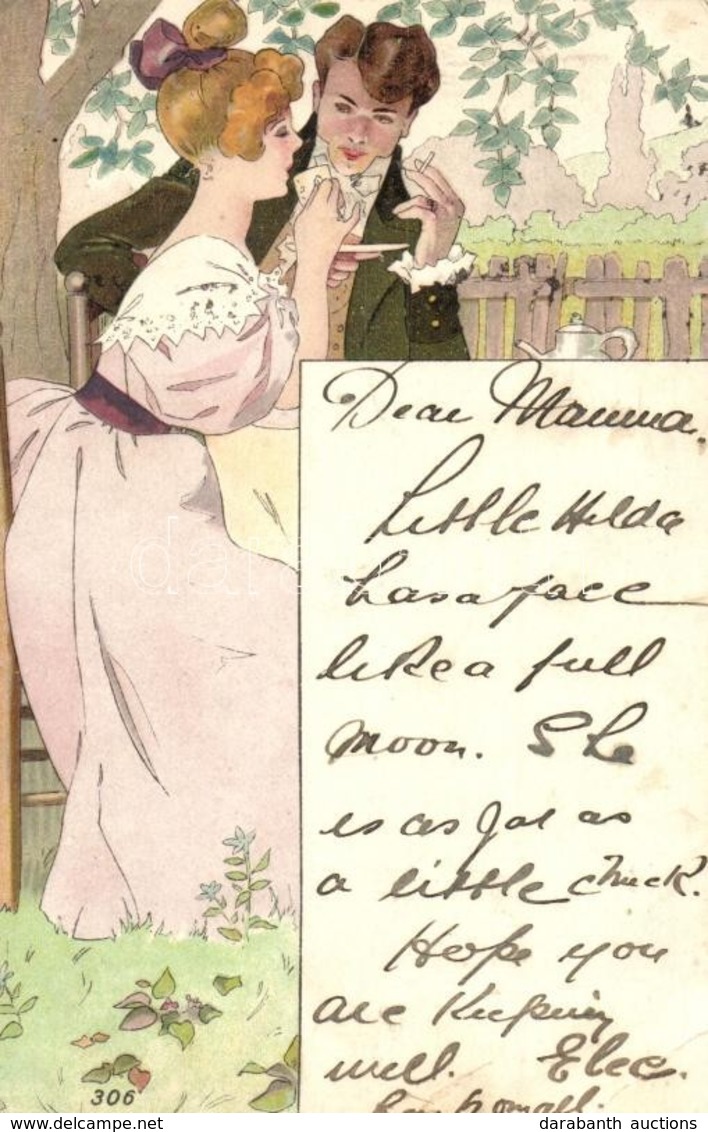 Dear Mamma.
Little Hilda
has a face
like a full
moon. She
is as fat as
a little chuck.
Hope you
are keeping
well. Elec.
306
darabanth auctions